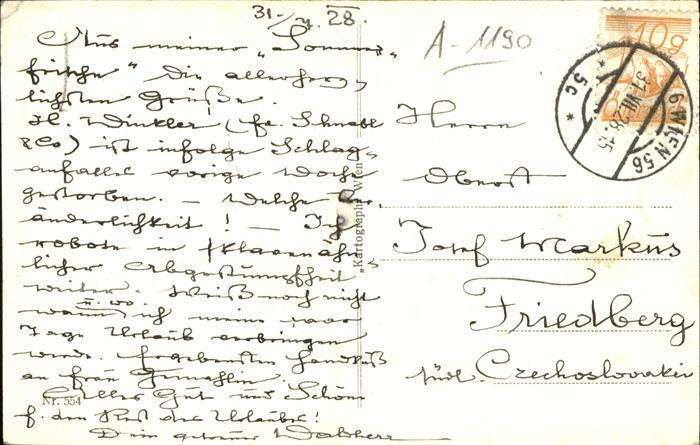 31. VII. 28.
Aus meiner „Sommer-
frische" die allerherz-
lichsten Grüße.
H. Winkler (fa. Schnabl
& Co) ist infolge Schlag-
anfalles vorige Woche
gestorben. — Welche Ver-
änderlichkeit! — Ich
robote in sklavenähn-
licher Abgestumpftheit
weiter. Weiß noch nicht
u. wo
wann ich meine paar
Tage Urlaub verbringen
werde. Ergebensten Handkuß
an Frau Gemahlin.
Alles Gute und Schöne
f. den Rest des Urlaubs!
Dein getreuer
Nr. 554
„Kartographia" Wien
A-1190
10g
6 WIEN 56
31.VII.28.15
* 5c *
Herrn
Oberst
Josef Markus
Friedberg
südl. Czechoslovakei